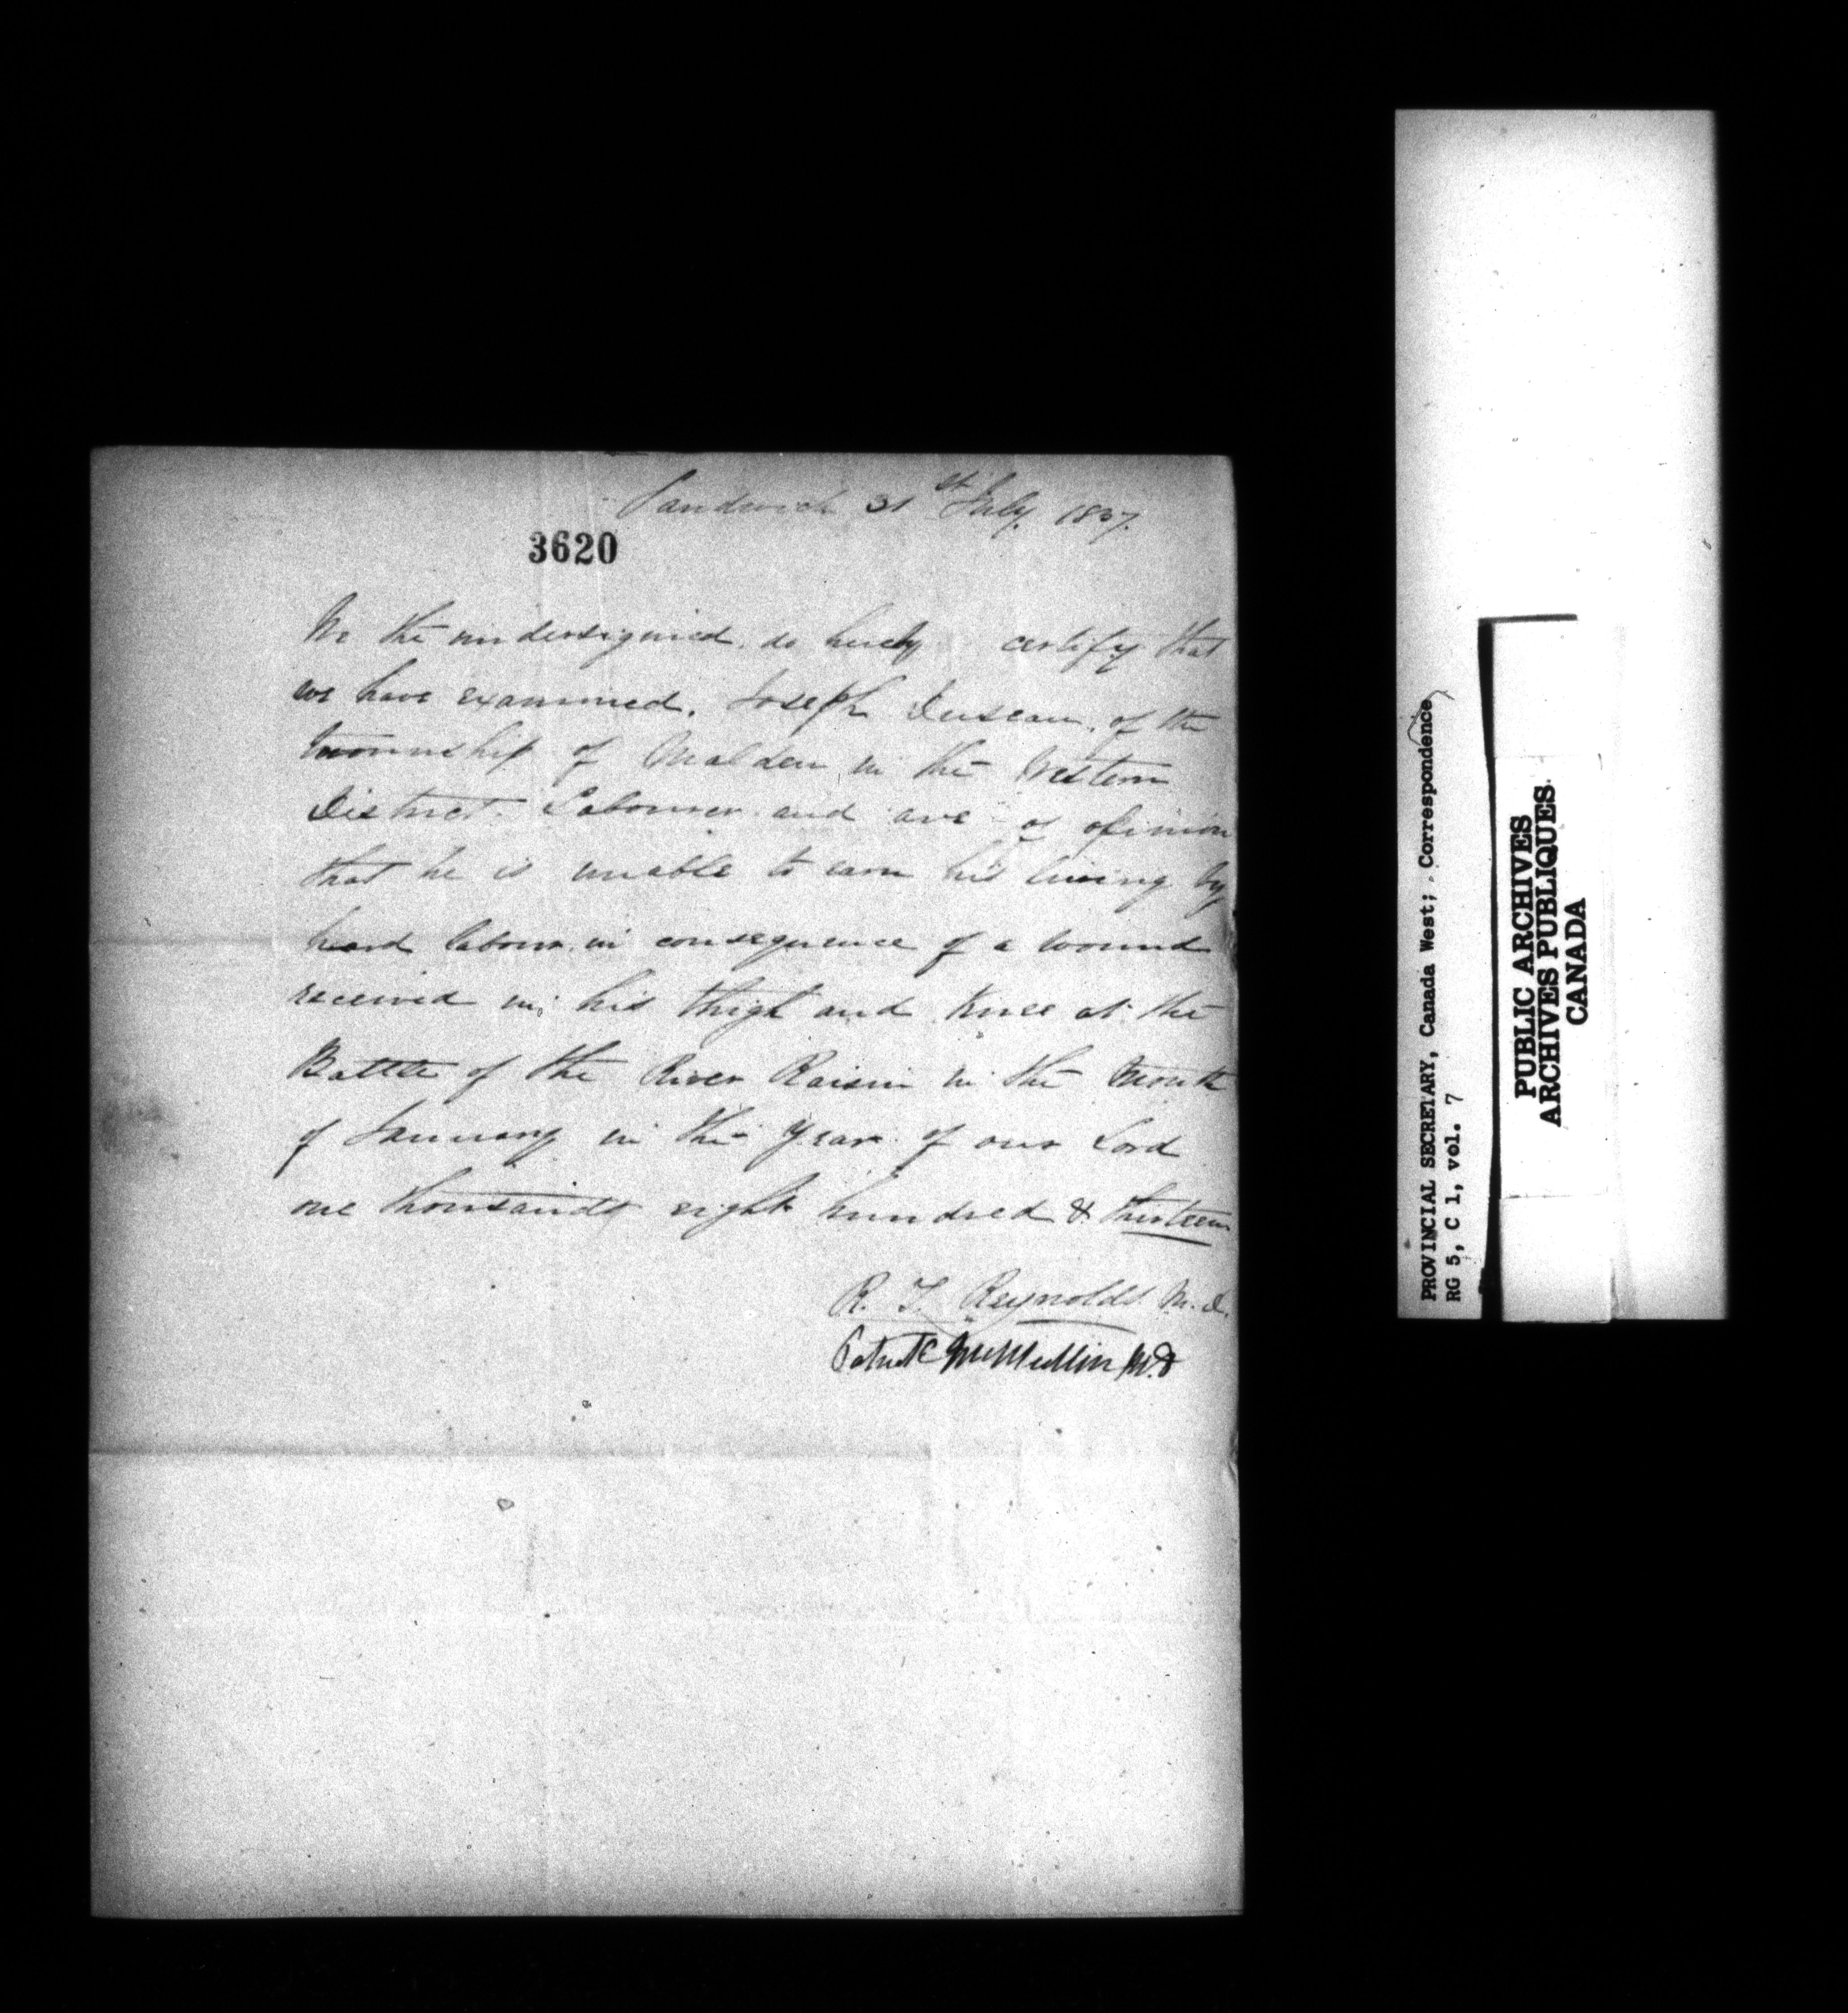 Sandwich 31st July. 1837.
3620
We the undersigned do hereby certify that
we have examined. Joseph Duseau of the
township of Malden in the Western
District Labourer and are of opinion
that he is unable to earn his living by
hard labour in consequence of a wound
received in his thigh and knee at the
Battle of the River Raisin in the month
of January in the year of our Lord
one thousand eight hundred & thirteen
R. T. Reynolds M.D.
Patrick McMullin M.D
PROVINCIAL SECRETARY, Canada West; Correspondence
RG 5, C 1, vol. 7
PUBLIC ARCHIVES
ARCHIVES PUBLIQUES
CANADA